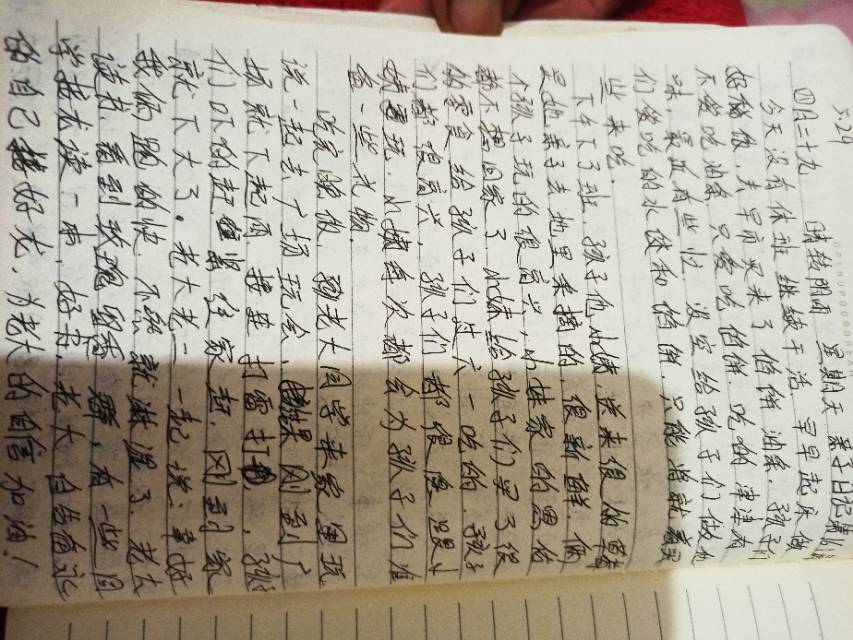 5.29
四月二十九 晴转阴雨 星期天 亲子日记第
今天没有休班 继续干活,早早起床做
好稀饭 去早市买来了馅饼油条.孩子们
不爱吃油条 只爱吃馅饼.吃的津津有
味.最近有些忙 没空给孩子们做他
们爱吃的水饺和馅饼.只能将就着买
些来吃.
下午下了班 孩子他小姨送来很多草莓
是她亲手去地里采摘的.很新鲜.俩
个孩子玩的很高兴,小姨家的恩佑
都不想回家了 小姨给孩子们买了很
多零食 给孩子们过六一吃的.孩子
们都很高兴.孩子们都很 跟小
姨玩.小姨每次都会为孩子们准
备一些礼物.
吃完晚饭 孙老大同学来家里玩
说一起去广场玩会,结果刚到广
场就下起雨 接连打雷打闪.孩
们吓的赶紧往家赶.刚到家
就下大了。老大老二一起说:幸好
我们跑的快.不然就淋湿了.老大
读书,看到玫瑰 香 ,有一些同
学 读一本,好书,老大 自告奋
的自己接好龙.为老大的自信加油!